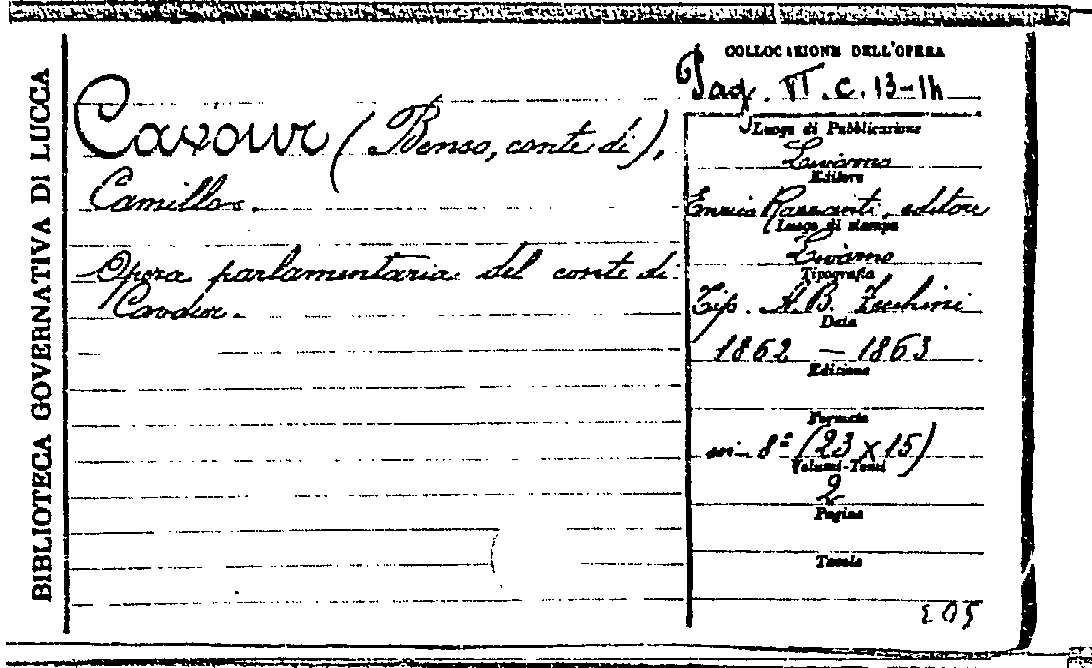 BIBLIOTECA GOVERNATIVA DI LUCCA
Cavour (Benso, conte di),
Camillo.
Opera parlamentaria del conte di
Cavour.
COLLOCAZIONE DELL'OPERA
Pag. VI. c. 13-14
Luogo di Pubblicazione
Livorno
Editore
Enrico Razzauti, editore
Luogo di stampa
Livorno
Tipografia
Tip. A. B. Zecchini
Data
1862 - 1863
Edizione
Formato
in-8º (23 x 15)
Volumi-Tomi
2
Pagine
Tavole